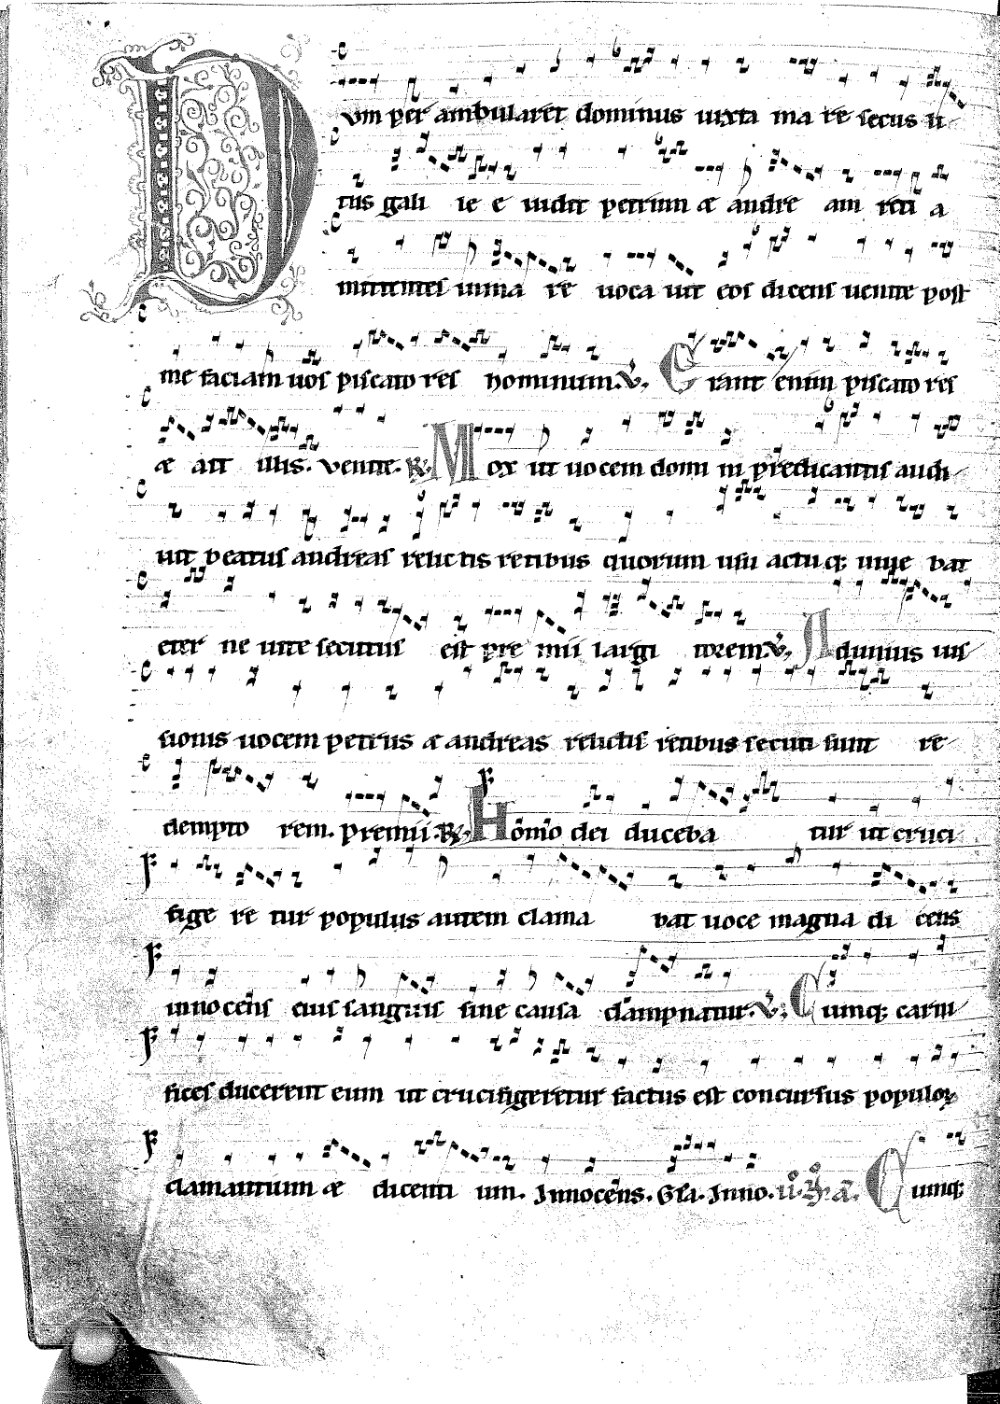 Dum per ambularet dominus iuxta ma re secus li
tus gali le e uidit petrum & andre am reti a
mittentes inma re uoca uit eos dicens uenite post
me faciam uos piscato res hominum. V. Erant enim piscato res
& ait illis. venite. R. Mox ut uocem domi ni predicantis audi
uit beatus andreas relictis retibus quorum usu actuq; uiue bat
eter ne uite secutus est pre mii largi torem. V. Ad unius ius
sionis uocem petrus & andreas relictis retibus secuti sunt re
dempto rem. premii. R. Homo dei duceba tur ut cruci
fige re tur populus autem clama bat uoce magna di cens
innocens eius sanguis sine causa dampnatur. V. Cumq; carni
fices ducerent eum ut crucifigeretur factus est concursus populoꝝ
clamantium & dicenti um. Innocens. Gla. Inno. Cumq;